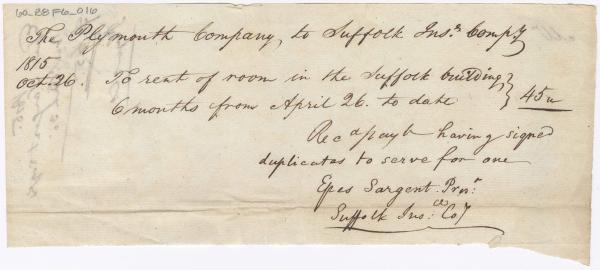 60_28F6_016
The Plymouth Company, to Suffolk Ins.ᵉ Compy
1815
Oct. 26. To rent of room in the Suffolk building
6 months from April 26. to date } 45
Recᵈ payt having signed
duplicates to serve for one
Epes Sargent. Presᵗ
Suffolk Ins: Coy